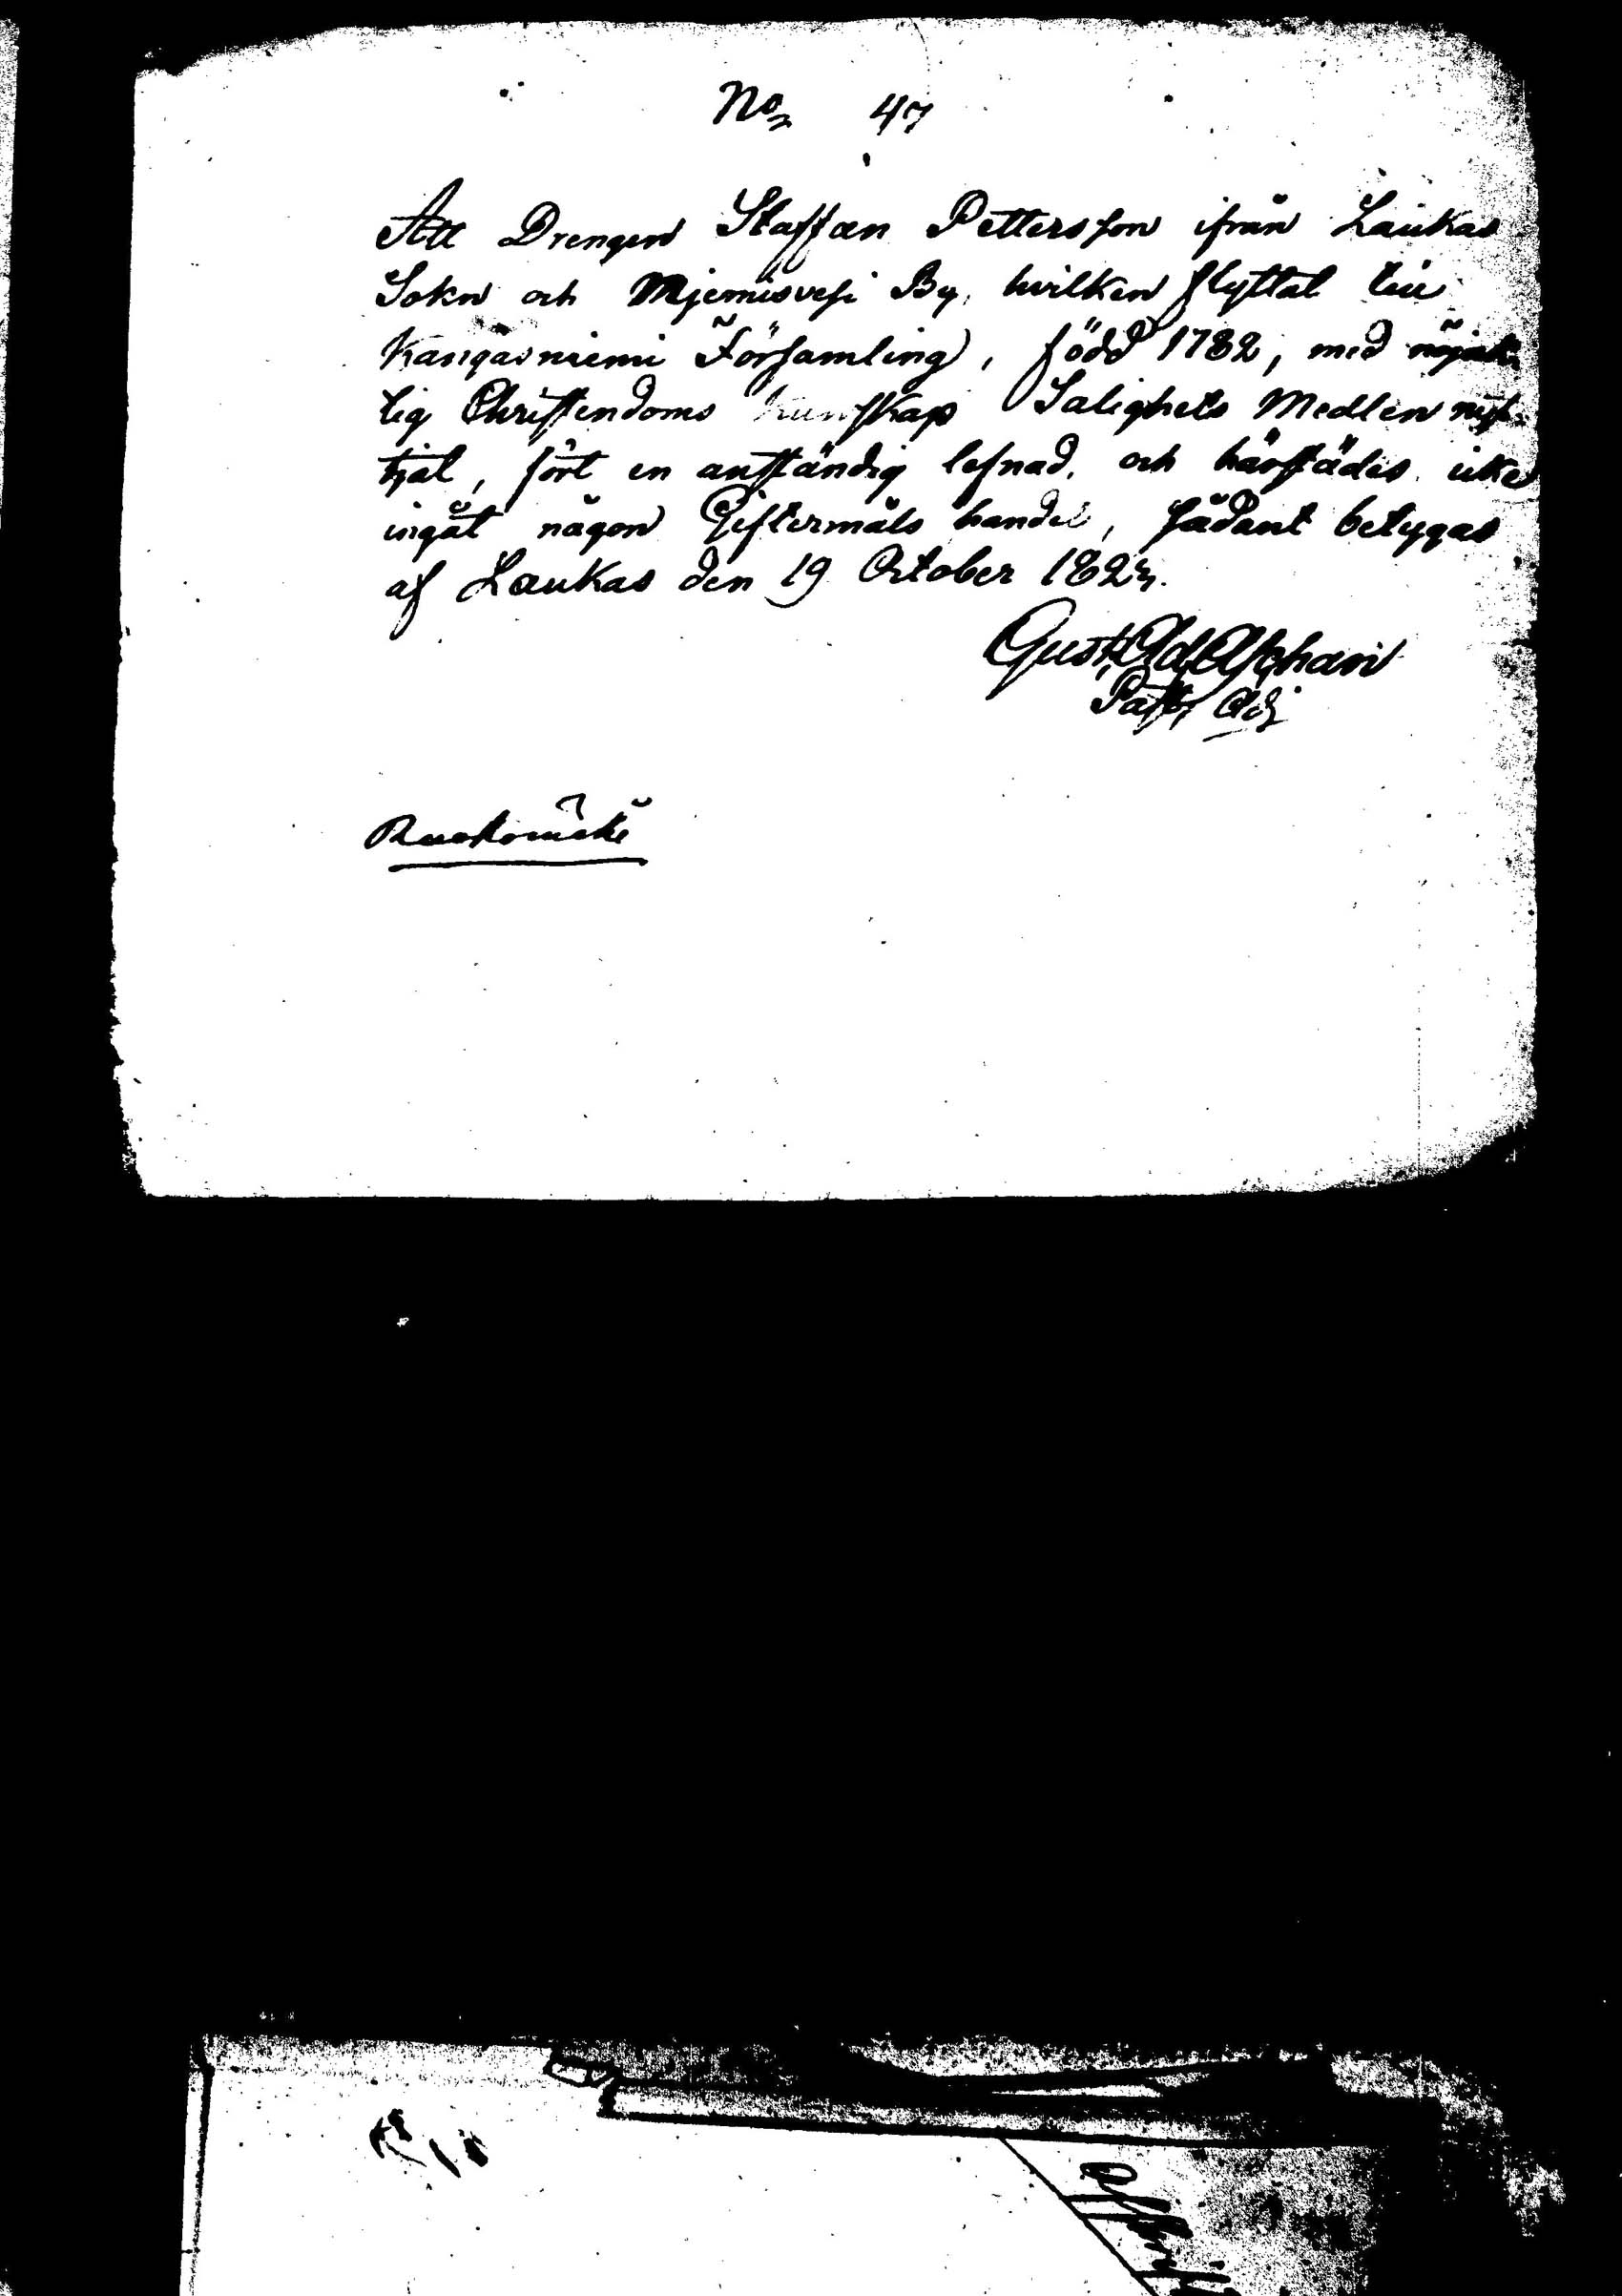 No 47
Att Drengen Staffan Pettersson ifrån Laukas
Sokn och Mjemisvesi By, hvilken flyttat till
Kangasniemi Församling, född 1782, med nöjak
lig Christendoms Kunskap Salighets Medlen nyt
tjat, fört en anständig lefnad, och härstädes icke
ingåt någon Giftermåls handel, sådant betygas
af Laukas den 19 October 182
Gust. Ad.
Past. Adj